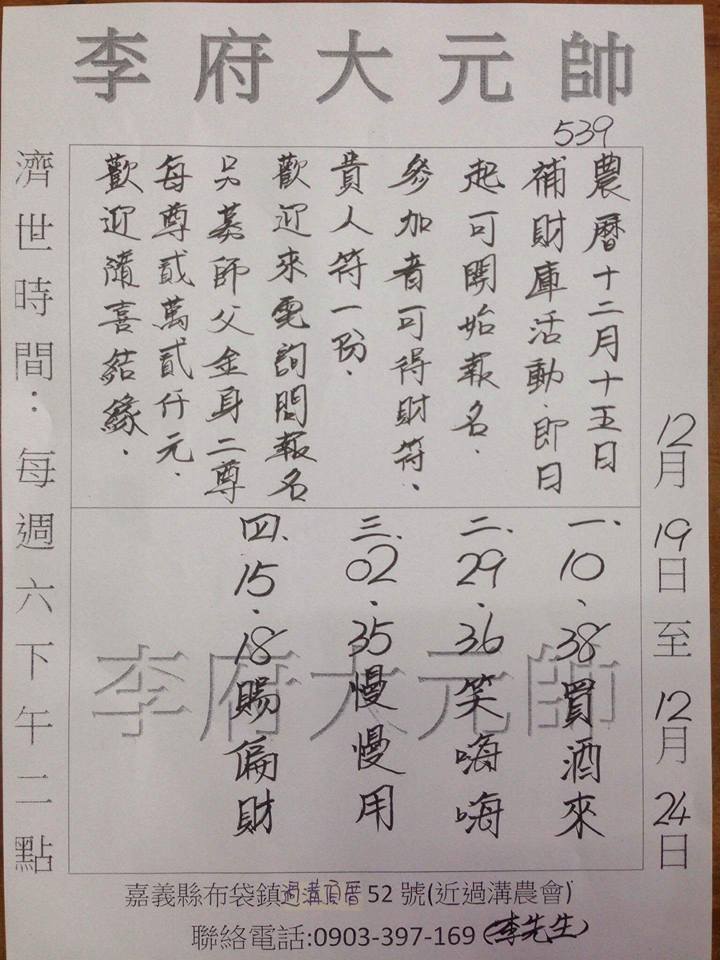 李府大元帥
539
農曆十二月十五日
補財庫活動.即日
起可開始報名.
參加者可得財符、
貴人符一份.
歡迎來電詢問報名
另募師父金身二尊
每尊貳萬貳仟元.
歡迎隨喜結緣.
12月19日至12月24日
一.10、38買酒來
二.29.36笑嗨嗨
三.02.35慢慢用
四.15.18賜偏財
李府大元帥
濟世時間:每週六下午二點
嘉義縣布袋鎮過溝頂厝52號(近過溝農會)
聯絡電話:0903-397-169(李先生)